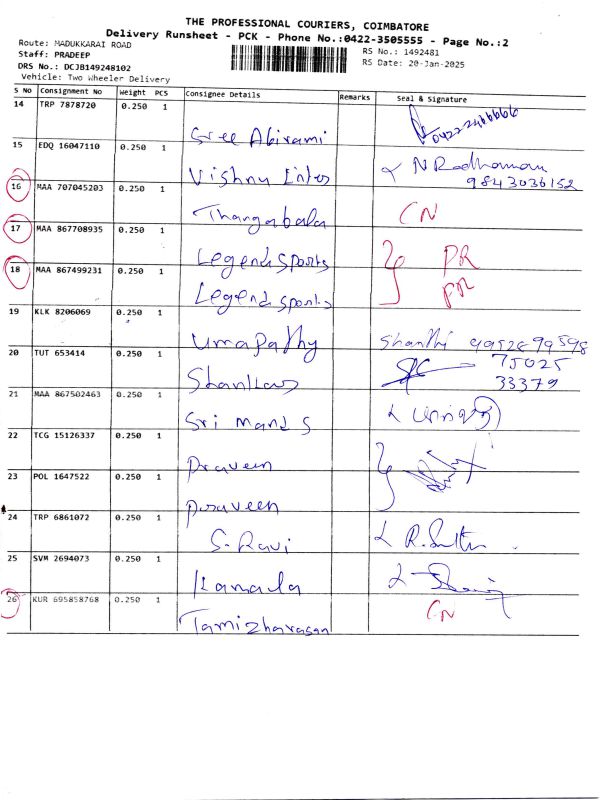 THE PROFESSIONAL COURIERS, COIMBATORE
Delivery Runsheet - PCK - Phone No.:0422-3505555 - Page No.:2
Route: MADUKKARAI ROAD
RS No.: 1492481
Staff: PRADEEP
RS Date: 20-Jan-2025
DRS No.: DCJB149248102
Vehicle: Two Wheeler Delivery
S No Consignment No Weight PCS Consignee Details Remarks Seal & Signature
14 TRP 7878720 0.250 1
Sree Abirami
15 EDQ 16047110 0.250 1
Vishnu Enters
N Radhamani
9843036152
16 MAA 707045203 0.250 1
Thangabala CN
17 MAA 867708935 0.250 1
Legend Sports PR
18 MAA 867499231 0.250 1
Legend Sports PR
19 KLK 8206069 0.250 1
Umapathy Shanthi
20 TUT 653414 0.250 1
75025
33379
21 MAA 867502463 0.250 1
22 TCG 15126337 0.250 1
Praveen
23 POL 1647522 0.250 1
Praveen
24 TRP 6861072 0.250 1
S. Ravi
25 SVM 2694073 0.250 1
Kamala
26 KUR 695858768 0.250 1
Tamizharasan CN